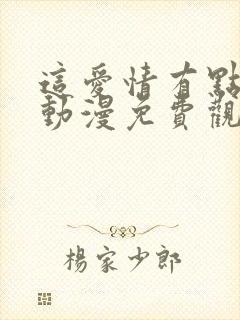 這愛情有點
動漫免費觀
楊家少郎